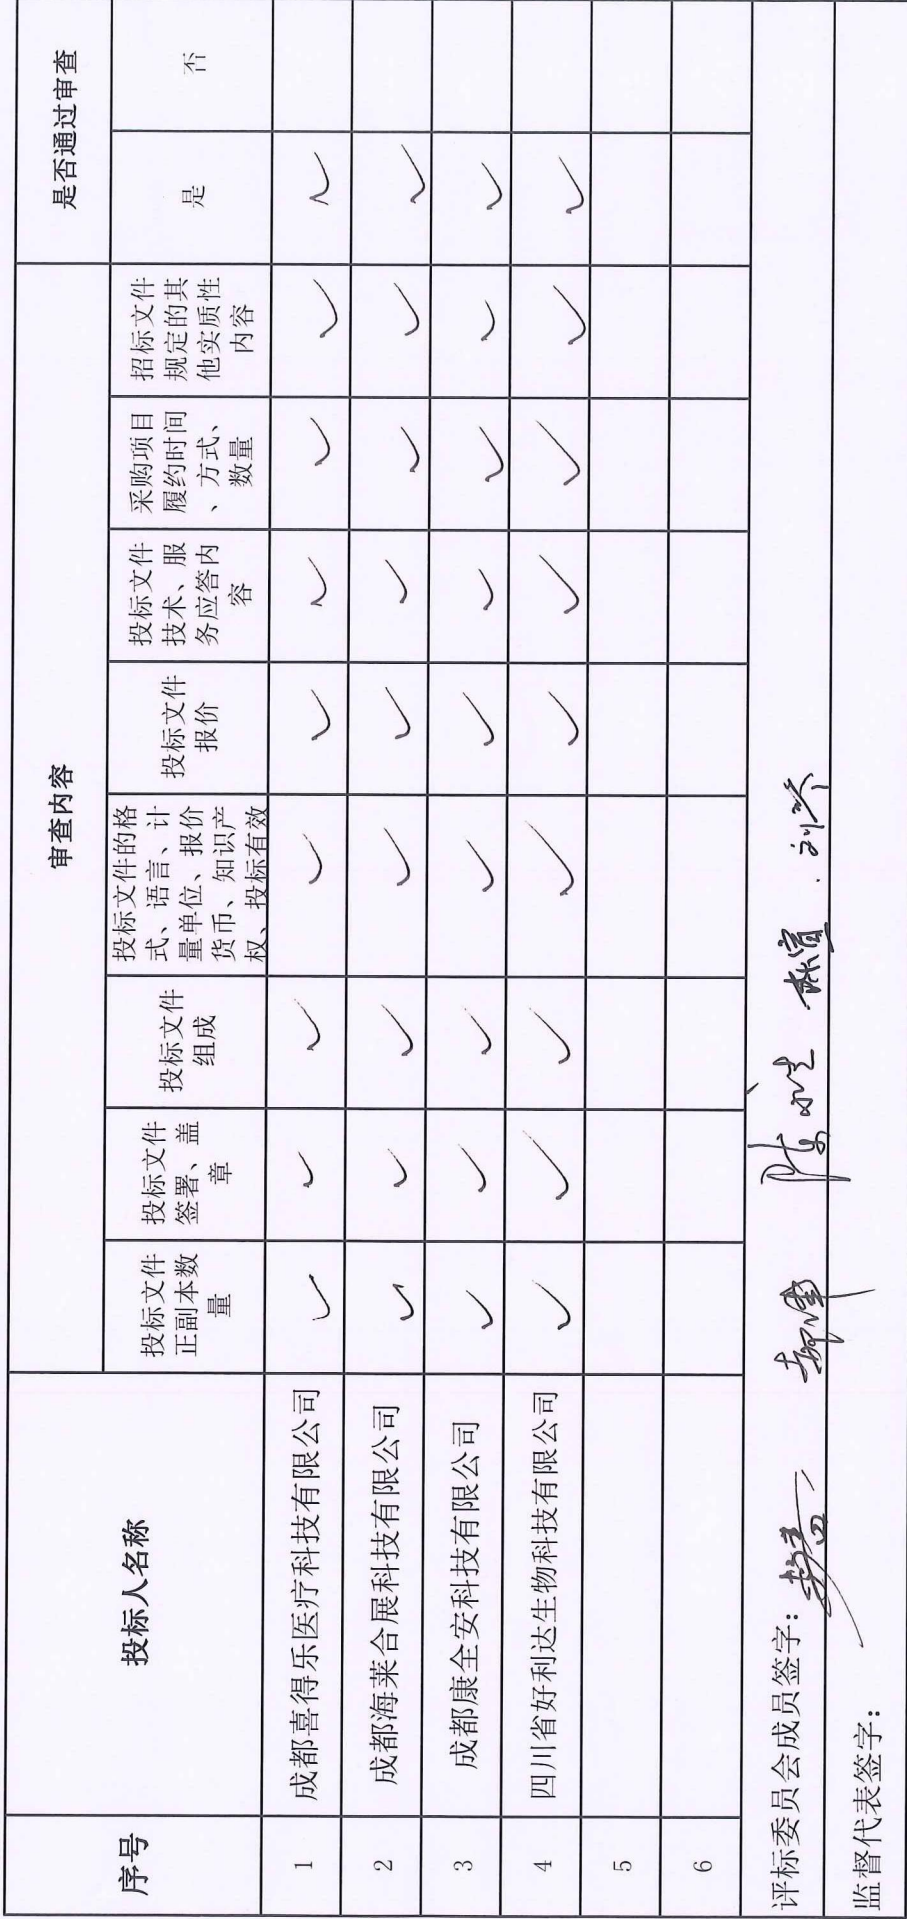 序号 投标人名称 审查内容 是否通过审查
投标文件
正副本数
量
投标文件
签署、盖
章
投标文件
组成
投标文件的格
式、语言、计
量单位、报价
货币、知识产
权、投标有效
投标文件
报价
投标文件
技术、服
务应答内
容
采购项目
履约时间
、方式、
数量
招标文件
规定的其
他实质性
内容
是
否
1 成都喜得乐医疗科技有限公司 ✓ ✓ ✓ ✓ ✓ ✓ ✓ ✓ ✓
2 成都海莱合展科技有限公司 ✓ ✓ ✓ ✓ ✓ ✓ ✓ ✓ ✓
3 成都康全安科技有限公司 ✓ ✓ ✓ ✓ ✓ ✓ ✓ ✓ ✓
4 四川省好利达生物科技有限公司 ✓ ✓ ✓ ✓ ✓ ✓ ✓ ✓ ✓
5
6
评标委员会成员签字：
监督代表签字：